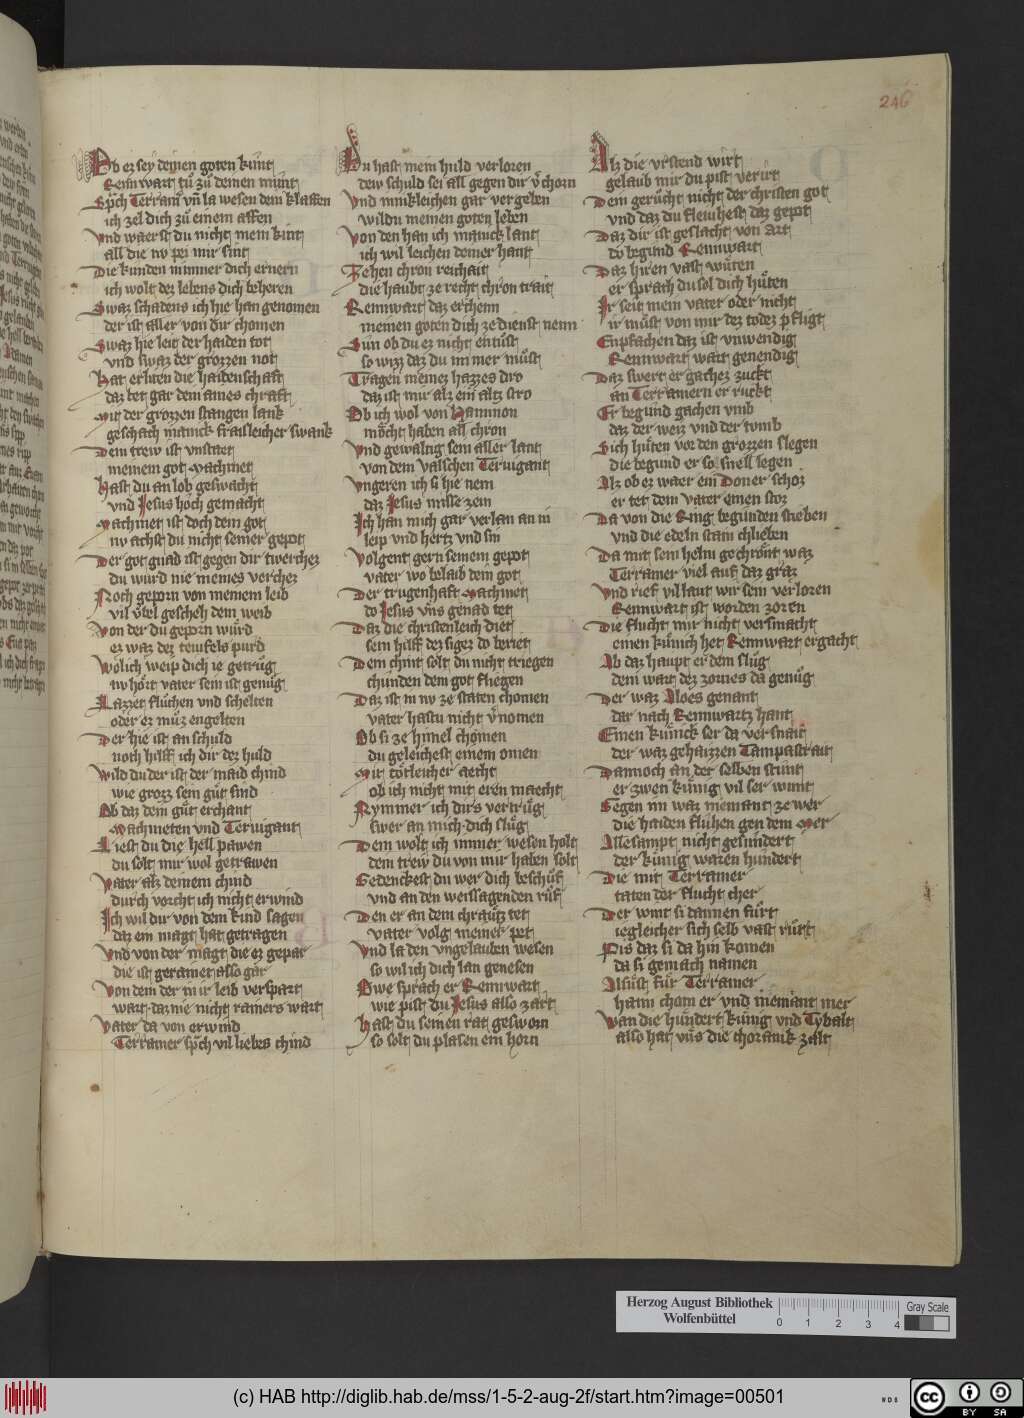 246
Ob ez sey deinen goten kunt
Rennwart tů zů deinen munt
Sp̄ch Terram̄ vn̄ la wesen dein klaffen
ich zel dich zů einem affen
Vnd waerst du nicht mein kint
all die nv pei mir sint
Die kunden nimmer dich ernern
ich wolt dez lebens dich beheren
Swaz schadens ich hie han genomen
der ist aller von dir chomen
Swaz hie leit der haiden tot
vnd swaz der grozzen not
Hat erliten die haidenschaft
daz tet gar dein aines chraft
Mit der grozzen stangen lank
geschach manick fraisleicher swank
Dein trew ist vnstaet
meinem got Machmet
Hast du an lob geswacht
vnd Jesus hoch gemacht
Machmet ist doch dein got
nv achst du nicht seiner gepot
Der got gnad ist gegen dir twerchez
du wurd nie meines verchez
Noch geporn von meinem leib
vil v̊bel gescheh dem weib
Von der du geporn wůrd
ez waz dez teufels purd
Welich weip dich ie getrůg
nv hȯrt vater sein ist genůg
Lazzet flůchen vnd schelten
oder ez můz engelten
Der hie ist an schuld
noch hilff ich dir dez huld
Wild du der ist der maid chind
wie grozz sein gůt sind
Ob daz dem gůt erchant
Machmeten vnd Teruigant
Liest du die hell pawen
du solt mir wol getrawen
Vater alz deinem chind
durch vorcht ich nicht erwind
Ich wil dir von dem kind sagen
daz ein magt hat getragen
Vnd von der magt die ez gepar
die ist geramet also gar
Von dem der mir leib verspart
wart daz nie nicht ramers wart
Vater da von erwind
Terramer sp̄ch vil liebes chind
Du hast mein huld verloren
dein schuld sei all gegen dir v̄chorn
Vnd minkleichen gar vergeben
wildu meinen goten leben
Von den han ich manick lant
ich wil leichen deiner hant
Zehen chron reichait
die haubt ze recht chron trait
Rennwart daz erchenn
meinen goten dich ze dienst nenn
Sun ob du ez nicht entust
so wizz daz du immer můst
Tragen meinez hazzes dro
daz ist mir alz ein altz stro
Ob ich wol von Hammon
mȯcht haben all chron
Vnd gewaltig sein aller lant
von dem valschen Teruigant
Vngeren ich si hie nem
daz Jesus misse zem
Ich han mich gar verlan an in
leip vnd hertz vnd sin
Volgent gern seinem gepot
vater wo belaib dein got
Der trugenhaft Machmet
do Jesus vns genad tet
Daz die christenleich diet
sein hilff dez sigez do beriet
Dem chint solt du nicht triegen
chunden dein got fliegen
Daz ist in nv ze staten chomen
vater hastu nicht v̄nomen
Ob si ze himel chomen
du geleichest einem omen
Mit tȯtleicher aecht
ob ich nicht mit eren maecht
Nymmer ich dirs vertrůg
swer an mich dich slůg
Dem wolt ich immer wesen holt
dein trew du von mir haben solt
Gedenckest du wer dich beschůf
vnd an den weissagenden růf
Den er an dem chraůtz tet
vater volg meiner pet
Vnd la den vngelauben wesen
so wil ich dich lan genesen
Owe sprach er Rennwart
wie pist du Jesus also zart
Hast du seinen rat gesworn
so solt du plasen ein horn
Alz die vrstend wirt
gelaub mir du pist verirt
Dem gerůcht nicht der christen got
vnd daz du fleuhest daz gepot
Daz dir ist geslacht von art
do begund Rennwart
Daz hiren vast wůten
er sprach du sol dich hůten
Ir seit mein vater oder nicht
ir můst von mir dez todez pfligt
Enpfachen daz ist vnwendig
Rennwart wart genendig
Daz swert er gachez zuckt
an Terramern er ruckt
Er begund gachen vmb
daz der weiz vnd der tumb
Sich hůten vor den grozzen slegen
die begund er so snell legen
Alz ob ez waer ein Doner schoz
er tet dem vater einen stoz
Da von die Ring begunden stieben
vnd die edeln stain chlieben
Da mit sein helm gechrȯnt waz
Terramer viel auf daz graz
Vnd rief vil laut wir sein verloren
Rennwart ist worden zoren
Die flucht mir nicht versmacht
einen kůnich het Rennwart ergacht
Ab daz haupt er dem slůg
dem wart dez zornes da genůg
Der waz Aloes genant
dar nach Rennwartz hant
Einen kůnick ser da versnait
der waz gehaizzen Tampastrait
Dannoch an der selben stunt
er zwen kůnig vil ser wunt
Gegen im waz niemant ze wer
die haiden fluhen gen dem Mer
Allesampt nicht gesundert
der kůnig waren hundert
Die mit Terramer
taten der flucht cher
Der wint si dannen fůrt
iegleicher sich selb vast růrt
Pis daz si da hin komen
da si gemach namen
Alsust fůr Terramer
haim chom er vnd niemant mer
Wan die hundert kůnig vnd Tybalt
also hat vns die choranik zalt
Herzog August Bibliothek
Wolfenbüttel
0 1 2 3 4
Gray Scale
(c) HAB http://diglib.hab.de/mss/1-5-2-aug-2f/start.htm?image=00501
cc BY SA